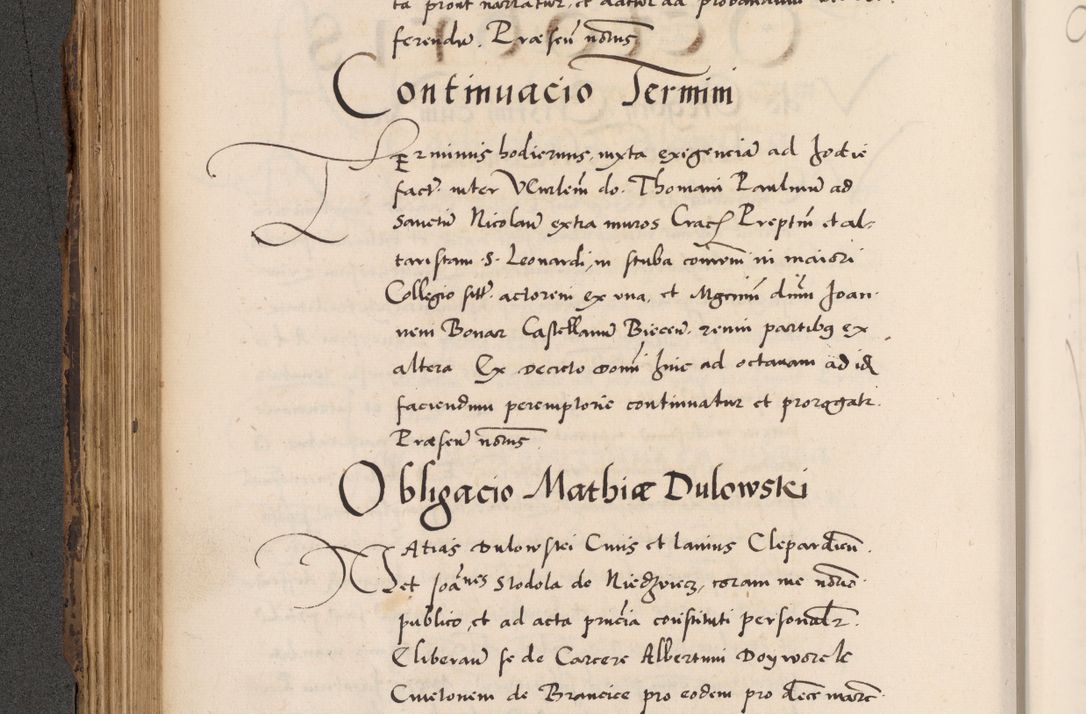 ta pront narratur, et datur ad probandum
ferendu. Præsen̄ notus
Continuacio Termini
Terminus hodiernus, iuxta exigenciā ad hodie
fact. inter Venlem do. Thomam Paulinū ad
Sanctū Nicolaū extra muros Crac̄ Preptm̄ et al-
taristam S. Leonardi, in stuba comm̄ in maiori
Collegio sitt. actorem ex vna, et Mgcum̄ dnm̄ Joan-
nem Bonar Castellanū Biecen̄. reum partibꝫ ex
altera Ex decreto domi huic ad octauam ad id
faciendum peremptorie continuatur et prorogatr.
Præsen̄ notus
Obligacio Mathiæ Dulowski
Matias Dulowski Ciuis et lanius Clepardien̄.
et Joānes Stodola de Niedzwiecz, coram me norio
publico, et ad acta pn̄cia constituti personalr.
Eliberan̄ se de Carcere Albertum
Cmetonem de Brancice pro eodem pro